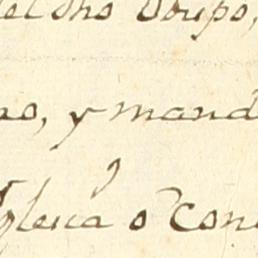 del dho Obispo,
no, y mand
Yglecia o con